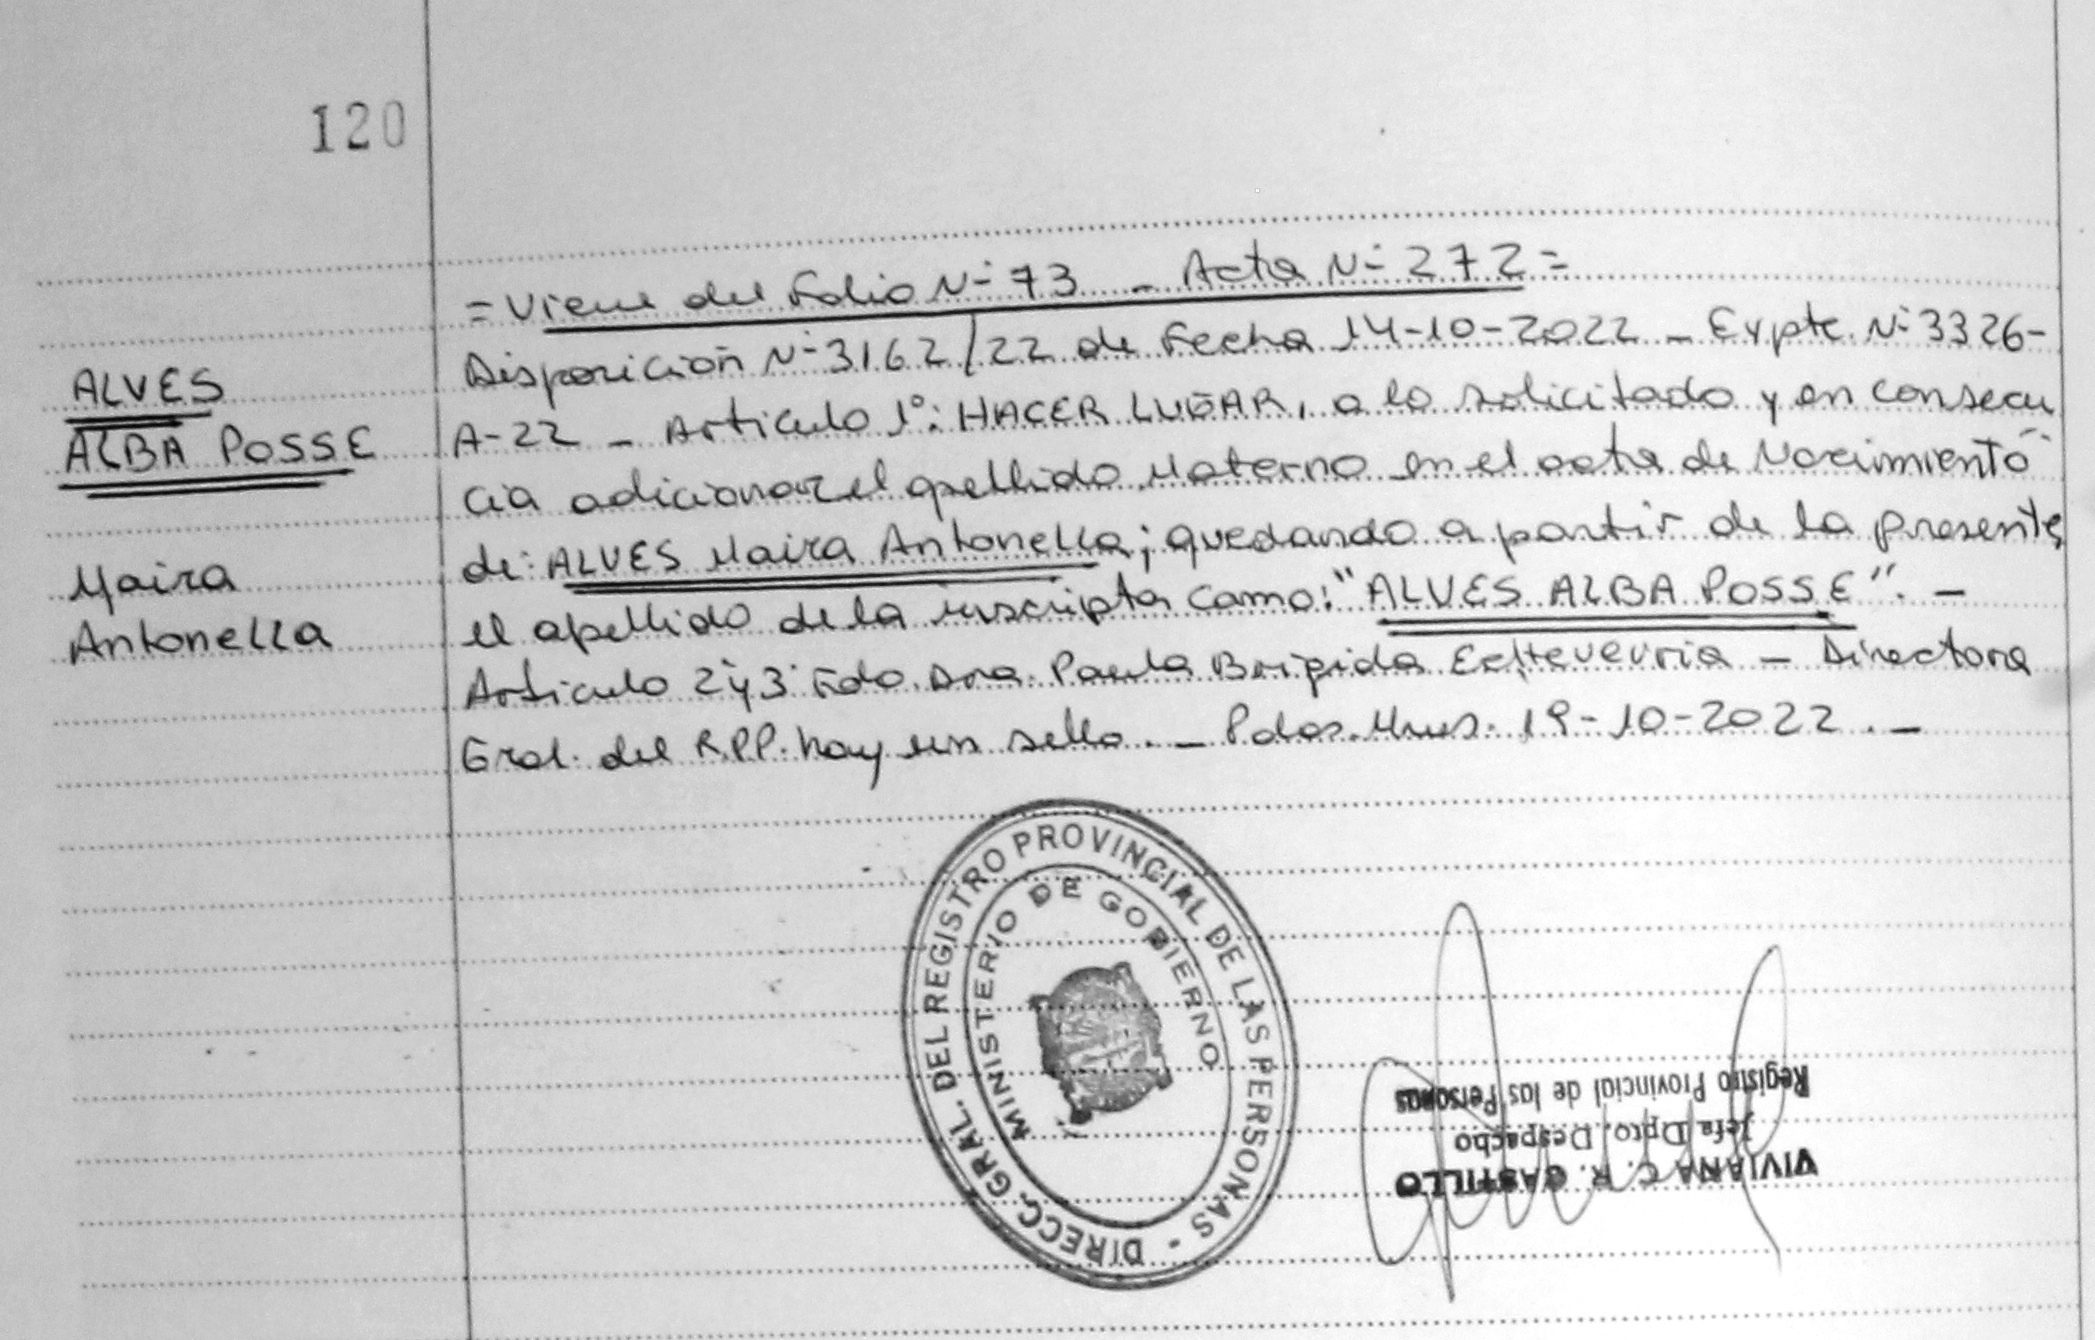 120
ALVES
ALBA POSSE
Maira
Antonella
= Viene del Folio Nº 73 - Acta Nº 272 =
Disposición Nº 3162/22 de Fecha 14-10-2022 - Expte. Nº 3326-
A-22 - Articulo 1º: HACER LUGAR, a lo solicitado y en consecu
cia adicionar el apellido Materno en el acta de Nacimiento
de: ALVES Maira Antonella; quedando a partir de la presente,
el apellido de la inscripta como: "ALVES ALBA POSSE". -
Articulo 2º y 3º Fdo. Dra. Paula Brigida Echeverria - Directora
Gral. del R.P.P. hay un sello. - Pdas. Mnes. 19-10-2022. -
DIRECC. GRAL. DEL REGISTRO PROVINCIAL DE LAS PERSONAS -
MINISTERIO DE GOBIERNO
VIVIANA C. R. CASTILLO
Jefa Dpto. Despacho
Registro Provincial de las Personas